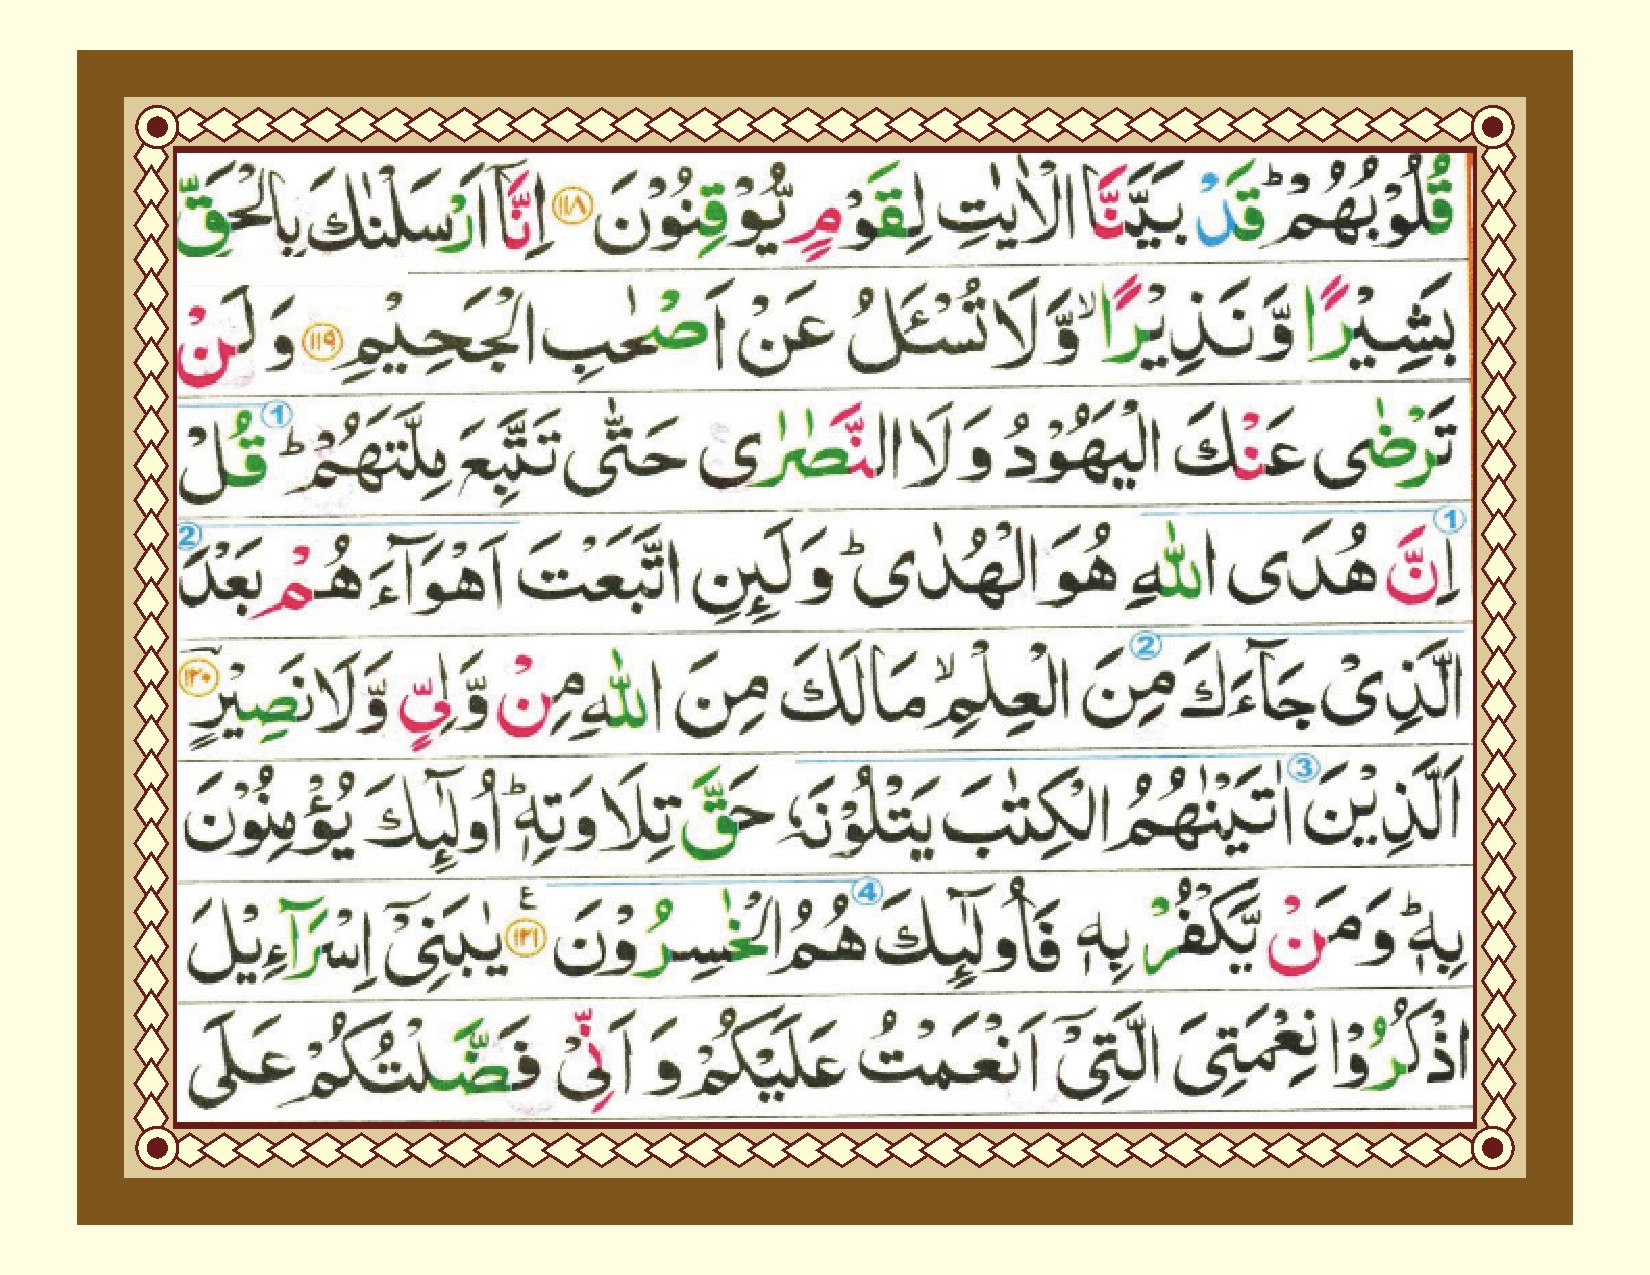 قُلُوْبُهُمْ ؕ قَدْ بَيَّنَّا الْاٰيٰتِ لِقَوْمٍ يُّوْقِنُوْنَ ۝۱۱۸ اِنَّاۤ اَرْسَلْنٰكَ بِالْحَقِّ
بَشِيْرًا وَّ نَذِيْرًا ۙ وَّ لَا تُسْـَٔلُ عَنْ اَصْحٰبِ الْجَحِيْمِ ۝۱۱۹ وَ لَنْ
تَرْضٰى عَنْكَ الْيَهُوْدُ وَ لَا النَّصٰرٰى حَتّٰى تَتَّبِعَ مِلَّتَهُمْ ؕ ① قُلْ
① اِنَّ هُدَى اللّٰهِ هُوَ الْهُدٰى ؕ وَلَىِٕنِ اتَّبَعْتَ اَهْوَآءَهُمْ بَعْدَ ②
الَّذِىْ جَآءَكَ ② مِنَ الْعِلْمِ ۙ مَا لَكَ مِنَ اللّٰهِ مِنْ وَّلِىٍّ وَّ لَا نَصِيْرٍؔ ۝۱۲۰
اَلَّذِيْنَ ③ اٰتَيْنٰهُمُ الْكِتٰبَ يَتْلُوْنَهٗ حَقَّ تِلَاوَتِهٖ ؕ اُولٰٓىِٕكَ يُؤْمِنُوْنَ
بِهٖ ؕ وَ مَنْ يَّكْفُرْ بِهٖ فَاُولٰٓىِٕكَ ④ هُمُ الْخٰسِرُوْنَ ۝۱۲۱ ع يٰبَنِىْۤ اِسْرَآءِيْلَ
اذْكُرُوْا نِعْمَتِىَ الَّتِىْۤ اَنْعَمْتُ عَلَيْكُمْ وَ اَنِّىْ فَضَّلْتُكُمْ عَلَى